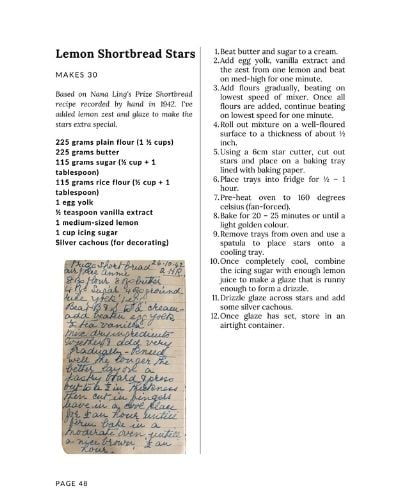 Lemon Shortbread Stars
MAKES 30
Based on Nana Ling's Prize Shortbread
recipe recorded by hand in 1942. I've
added lemon zest and glaze to make the
stars extra special.
225 grams plain flour (1 ½ cups)
225 grams butter
115 grams sugar (½ cup + 1
tablespoon)
115 grams rice flour (½ cup + 1
tablespoon)
1 egg yolk
½ teaspoon vanilla extract
1 medium-sized lemon
1 cup icing sugar
Silver cachous (for decorating)
Prize Shortbread
8 oz flour 8 oz butter
4 oz sugar 4 oz ground
rice yolk 1 egg
Beat B & S to a cream
add beaten egg yolk
½ tea vanilla
mix dry ingredients
together & add very
gradually - knead
well the longer the
better lay on a
pastry board & press
out to ½ in thickness
then cut in fingers
leave in a cool place
for ½ an hour until
firm bake in a
moderate oven until
a nice brown ½ an
hour.
PAGE 48
1. Beat butter and sugar to a cream.
2. Add egg yolk, vanilla extract and
the zest from one lemon and beat
on med-high for one minute.
3. Add flours gradually, beating on
lowest speed of mixer. Once all
flours are added, continue beating
on lowest speed for one minute.
4. Roll out mixture on a well-floured
surface to a thickness of about ½
inch.
5. Using a 6cm star cutter, cut out
stars and place on a baking tray
lined with baking paper.
6. Place trays into fridge for ½ – 1
hour.
7. Pre-heat oven to 160 degrees
celsius (fan-forced).
8. Bake for 20 – 25 minutes or until a
light golden colour.
9. Remove trays from oven and use a
spatula to place stars onto a
cooling tray.
10. Once completely cool, combine
the icing sugar with enough lemon
juice to make a glaze that is runny
enough to form a drizzle.
11. Drizzle glaze across stars and add
some silver cachous.
12. Once glaze has set, store in an
airtight container.